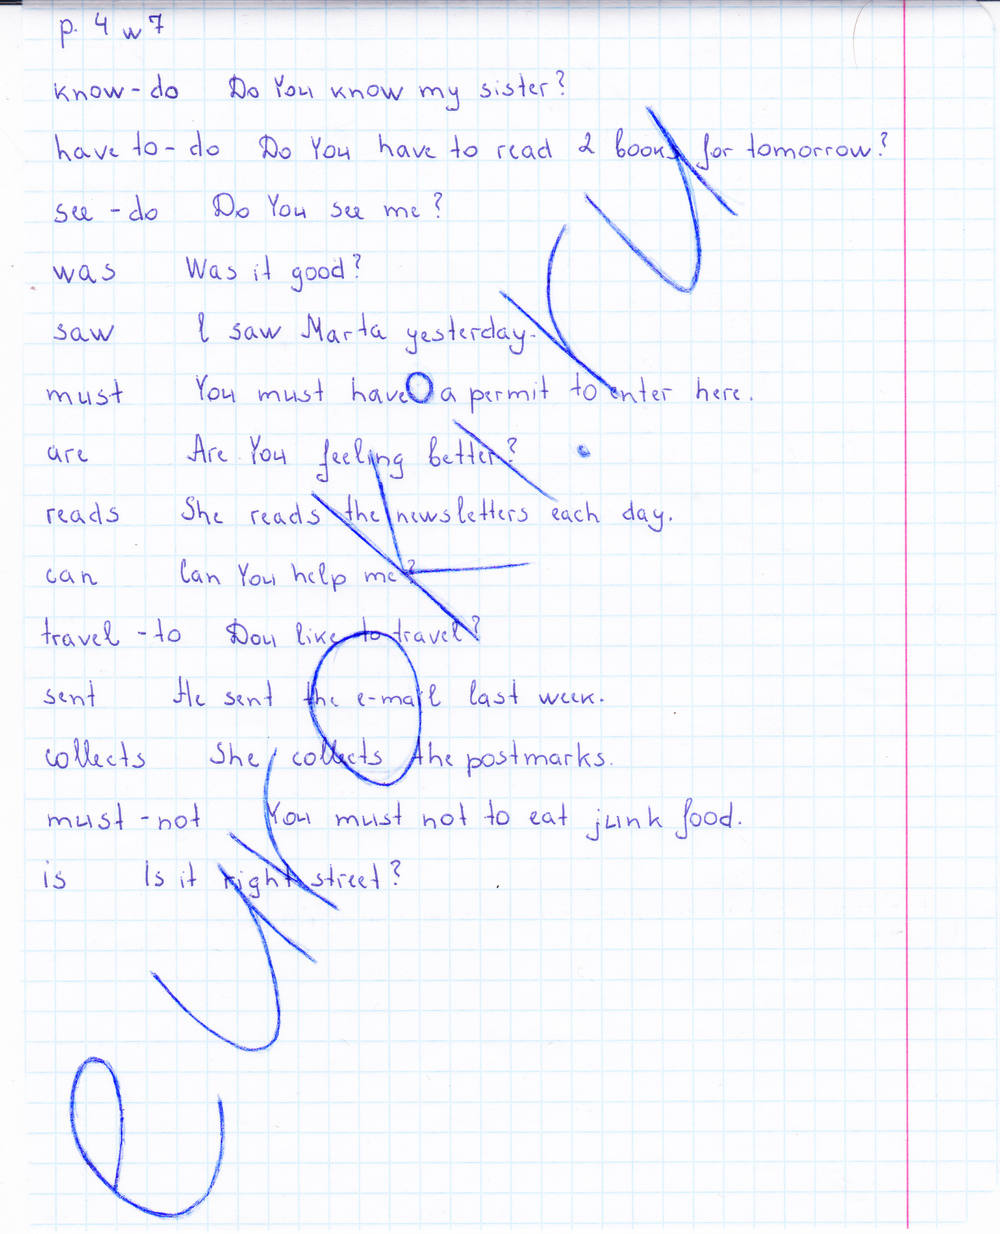 p. 4 w 7
know - do Do You know my sister?
have to - do Do You have to read 2 books for tomorrow?
see - do Do You see me?
was Was it good?
saw I saw Marta yesterday.
must You must have a permit to enter here.
are Are You feeling better?
reads She reads the newsletters each day.
can Can You help me?
travel - to Dou like to travel?
sent He sent the e-mail last week.
collects She collects the postmarks.
must - not You must not to eat junk food.
is Is it right street?